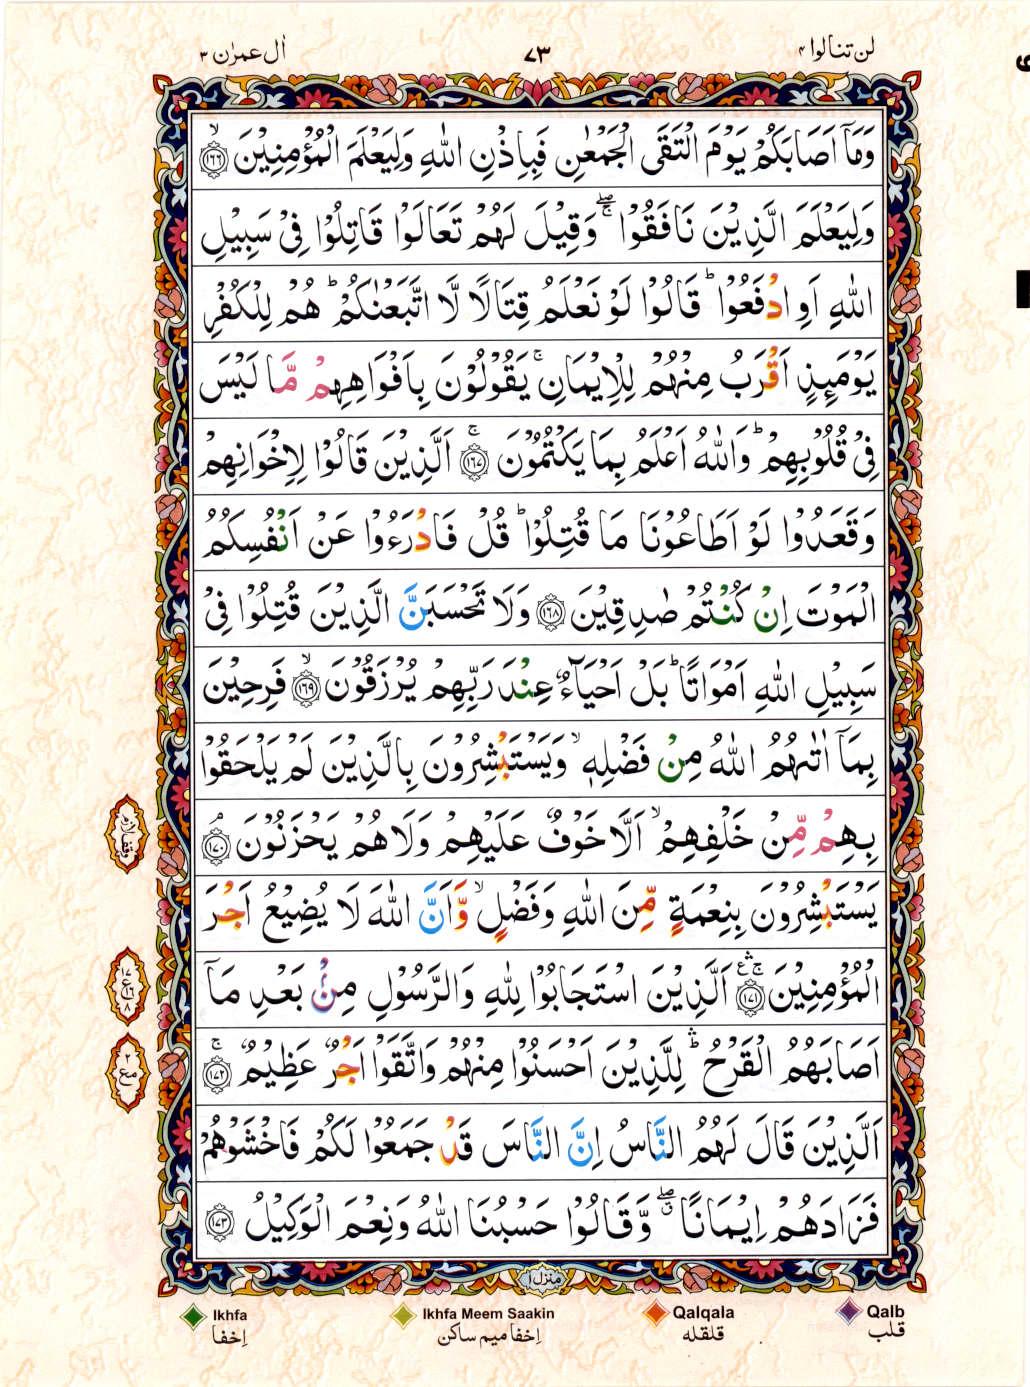 لن تنالوا ۴ ۷۳ اٰل عمرٰن ۳
وَمَاۤ اَصَابَكُمْ يَوْمَ الْتَقَى الْجَمْعٰنِ فَبِاِذْنِ اللّٰهِ وَلِيَعْلَمَ الْمُؤْمِنِيْنَ ۙ﴿۱۶۶﴾
وَلِيَعْلَمَ الَّذِيْنَ نَافَقُوْا ۖۚ وَقِيْلَ لَهُمْ تَعَالَوْا قَاتِلُوْا فِيْ سَبِيْلِ
اللّٰهِ اَوِ ادْفَعُوْا ؕ قَالُوْا لَوْ نَعْلَمُ قِتَالًا لَّا اتَّبَعْنٰكُمْ ؕ هُمْ لِلْكُفْرِ
يَوْمَىِٕذٍ اَقْرَبُ مِنْهُمْ لِلْاِيْمَانِ ۚ يَقُوْلُوْنَ بِاَفْوَاهِهِمْ مَّا لَيْسَ
فِيْ قُلُوْبِهِمْ ؕ وَاللّٰهُ اَعْلَمُ بِمَا يَكْتُمُوْنَ ۚ﴿۱۶۷﴾ اَلَّذِيْنَ قَالُوْا لِاِخْوَانِهِمْ
وَقَعَدُوْا لَوْ اَطَاعُوْنَا مَا قُتِلُوْا ؕ قُلْ فَادْرَءُوْا عَنْ اَنْفُسِكُمُ
الْمَوْتَ اِنْ كُنْتُمْ صٰدِقِيْنَ ﴿۱۶۸﴾ وَلَا تَحْسَبَنَّ الَّذِيْنَ قُتِلُوْا فِيْ
سَبِيْلِ اللّٰهِ اَمْوَاتًا ؕ بَلْ اَحْيَآءٌ عِنْدَ رَبِّهِمْ يُرْزَقُوْنَ ۙ﴿۱۶۹﴾ فَرِحِيْنَ
بِمَاۤ اٰتٰىهُمُ اللّٰهُ مِنْ فَضْلِهٖ ۙ وَيَسْتَبْشِرُوْنَ بِالَّذِيْنَ لَمْ يَلْحَقُوْا
بِهِمْ مِّنْ خَلْفِهِمْ ۙ اَلَّا خَوْفٌ عَلَيْهِمْ وَلَا هُمْ يَحْزَنُوْنَ ۘ﴿۱۷۰﴾
يَسْتَبْشِرُوْنَ بِنِعْمَةٍ مِّنَ اللّٰهِ وَفَضْلٍ ۙ وَّاَنَّ اللّٰهَ لَا يُضِيْعُ اَجْرَ
الْمُؤْمِنِيْنَ ۚ﴿۱۷۱﴾ اَلَّذِيْنَ اسْتَجَابُوْا لِلّٰهِ وَالرَّسُوْلِ مِنْۢ بَعْدِ مَاۤ
اَصَابَهُمُ الْقَرْحُ ۛؕ لِلَّذِيْنَ اَحْسَنُوْا مِنْهُمْ وَاتَّقَوْا اَجْرٌ عَظِيْمٌ ۚ﴿۱۷۲﴾
اَلَّذِيْنَ قَالَ لَهُمُ النَّاسُ اِنَّ النَّاسَ قَدْ جَمَعُوْا لَكُمْ فَاخْشَوْهُمْ
فَزَادَهُمْ اِيْمَانًا ۖۗ وَّقَالُوْا حَسْبُنَا اللّٰهُ وَنِعْمَ الْوَكِيْلُ ﴿۱۷۳﴾
منزل ۱
Ikhfa Ikhfa Meem Saakin Qalqala Qalb
اِخفا اِخفا میم ساکن قلقله قلب